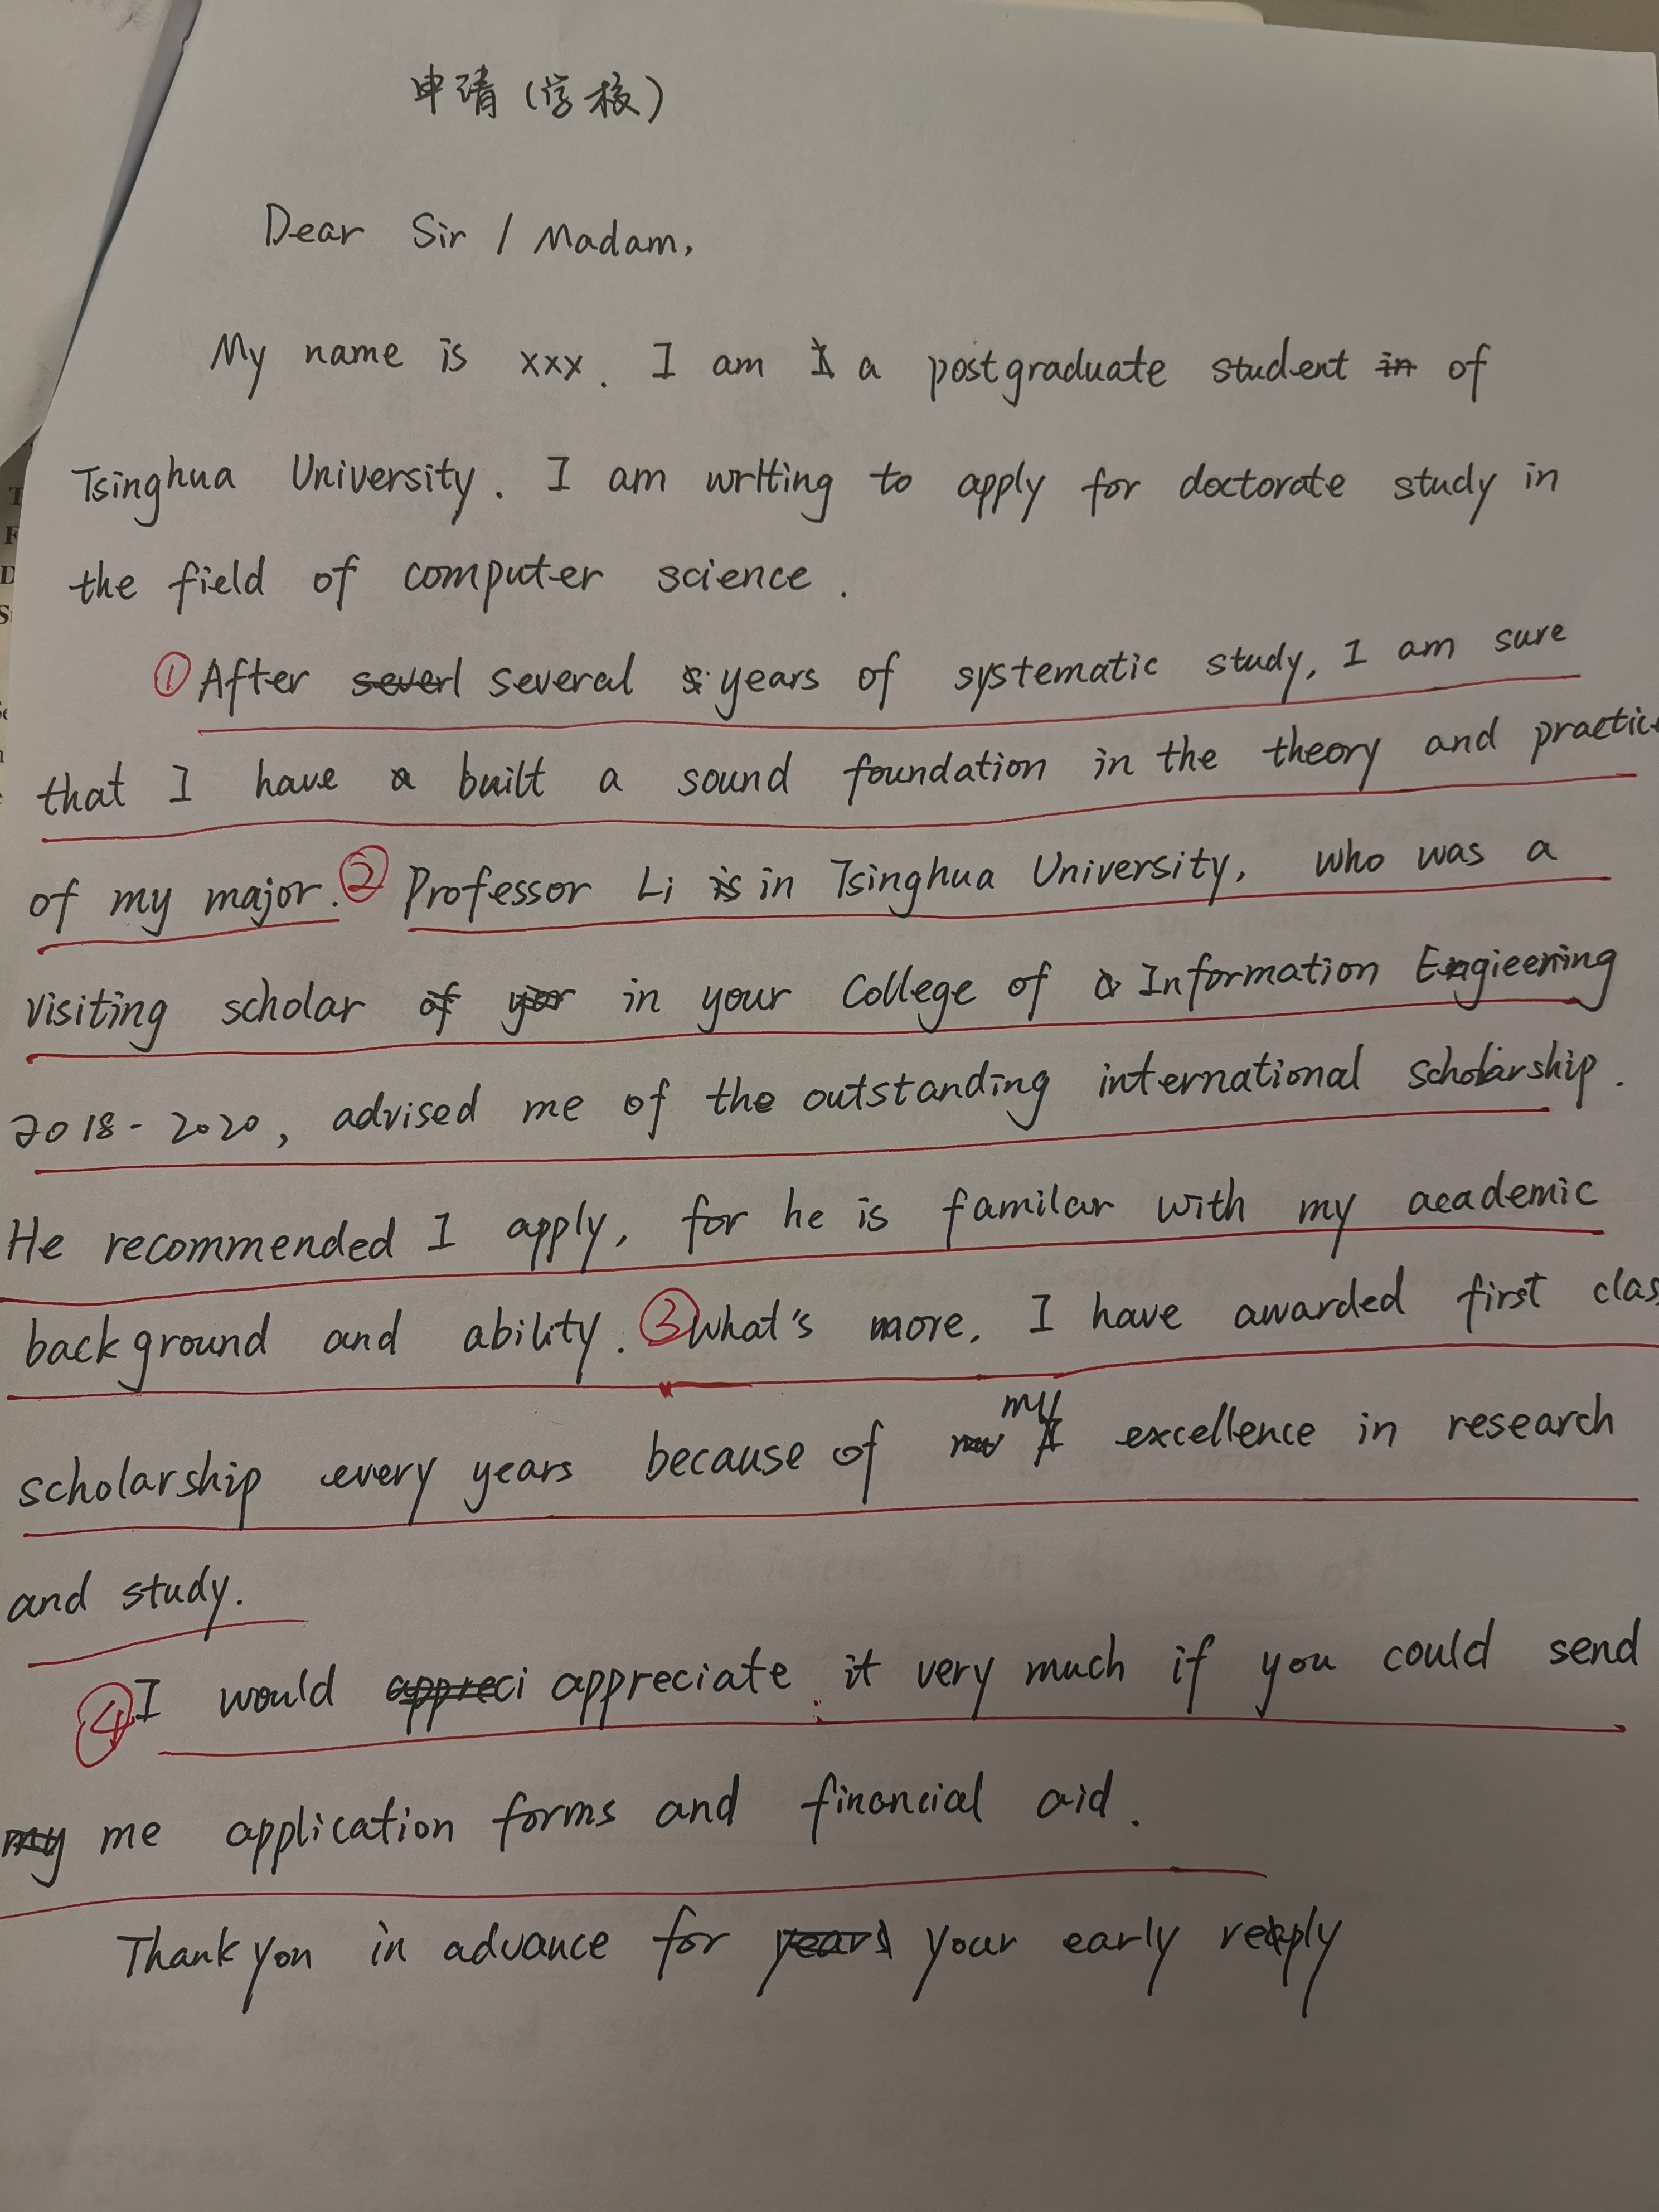 申请(学校)
Dear Sir / Madam,
My name is xxx. I am a postgraduate student of
Tsinghua University. I am writing to apply for doctorate study in
the field of computer science.
①After several years of systematic study, I am sure
that I have built a sound foundation in the theory and practic
of my major. ②Professor Li in Tsinghua University, who was a
visiting scholar in your College of Information Engieering
2018-2020, advised me of the outstanding international scholarship.
He recommended I apply, for he is familar with my academic
background and ability. ③What's more, I have awarded first clas
scholarship every years because of my excellence in research
and study.
④I would appreciate it very much if you could send
me application forms and financial aid.
Thank you in advance for your early reply